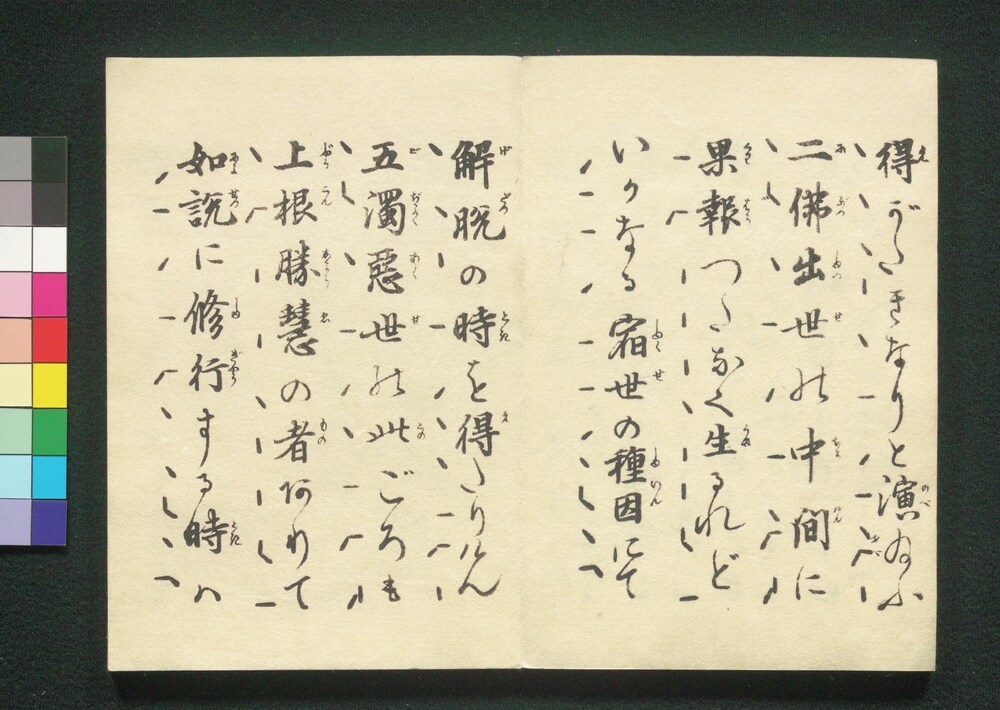 得がたきなりと演給ふ
二佛出世の中間に
果報つたなく生るれど
いかなる宿世の種因にて
解脱の時を得たりけん
五濁惡世の此ごろも
上根勝慧の者ありて
如説に修行する時ハ